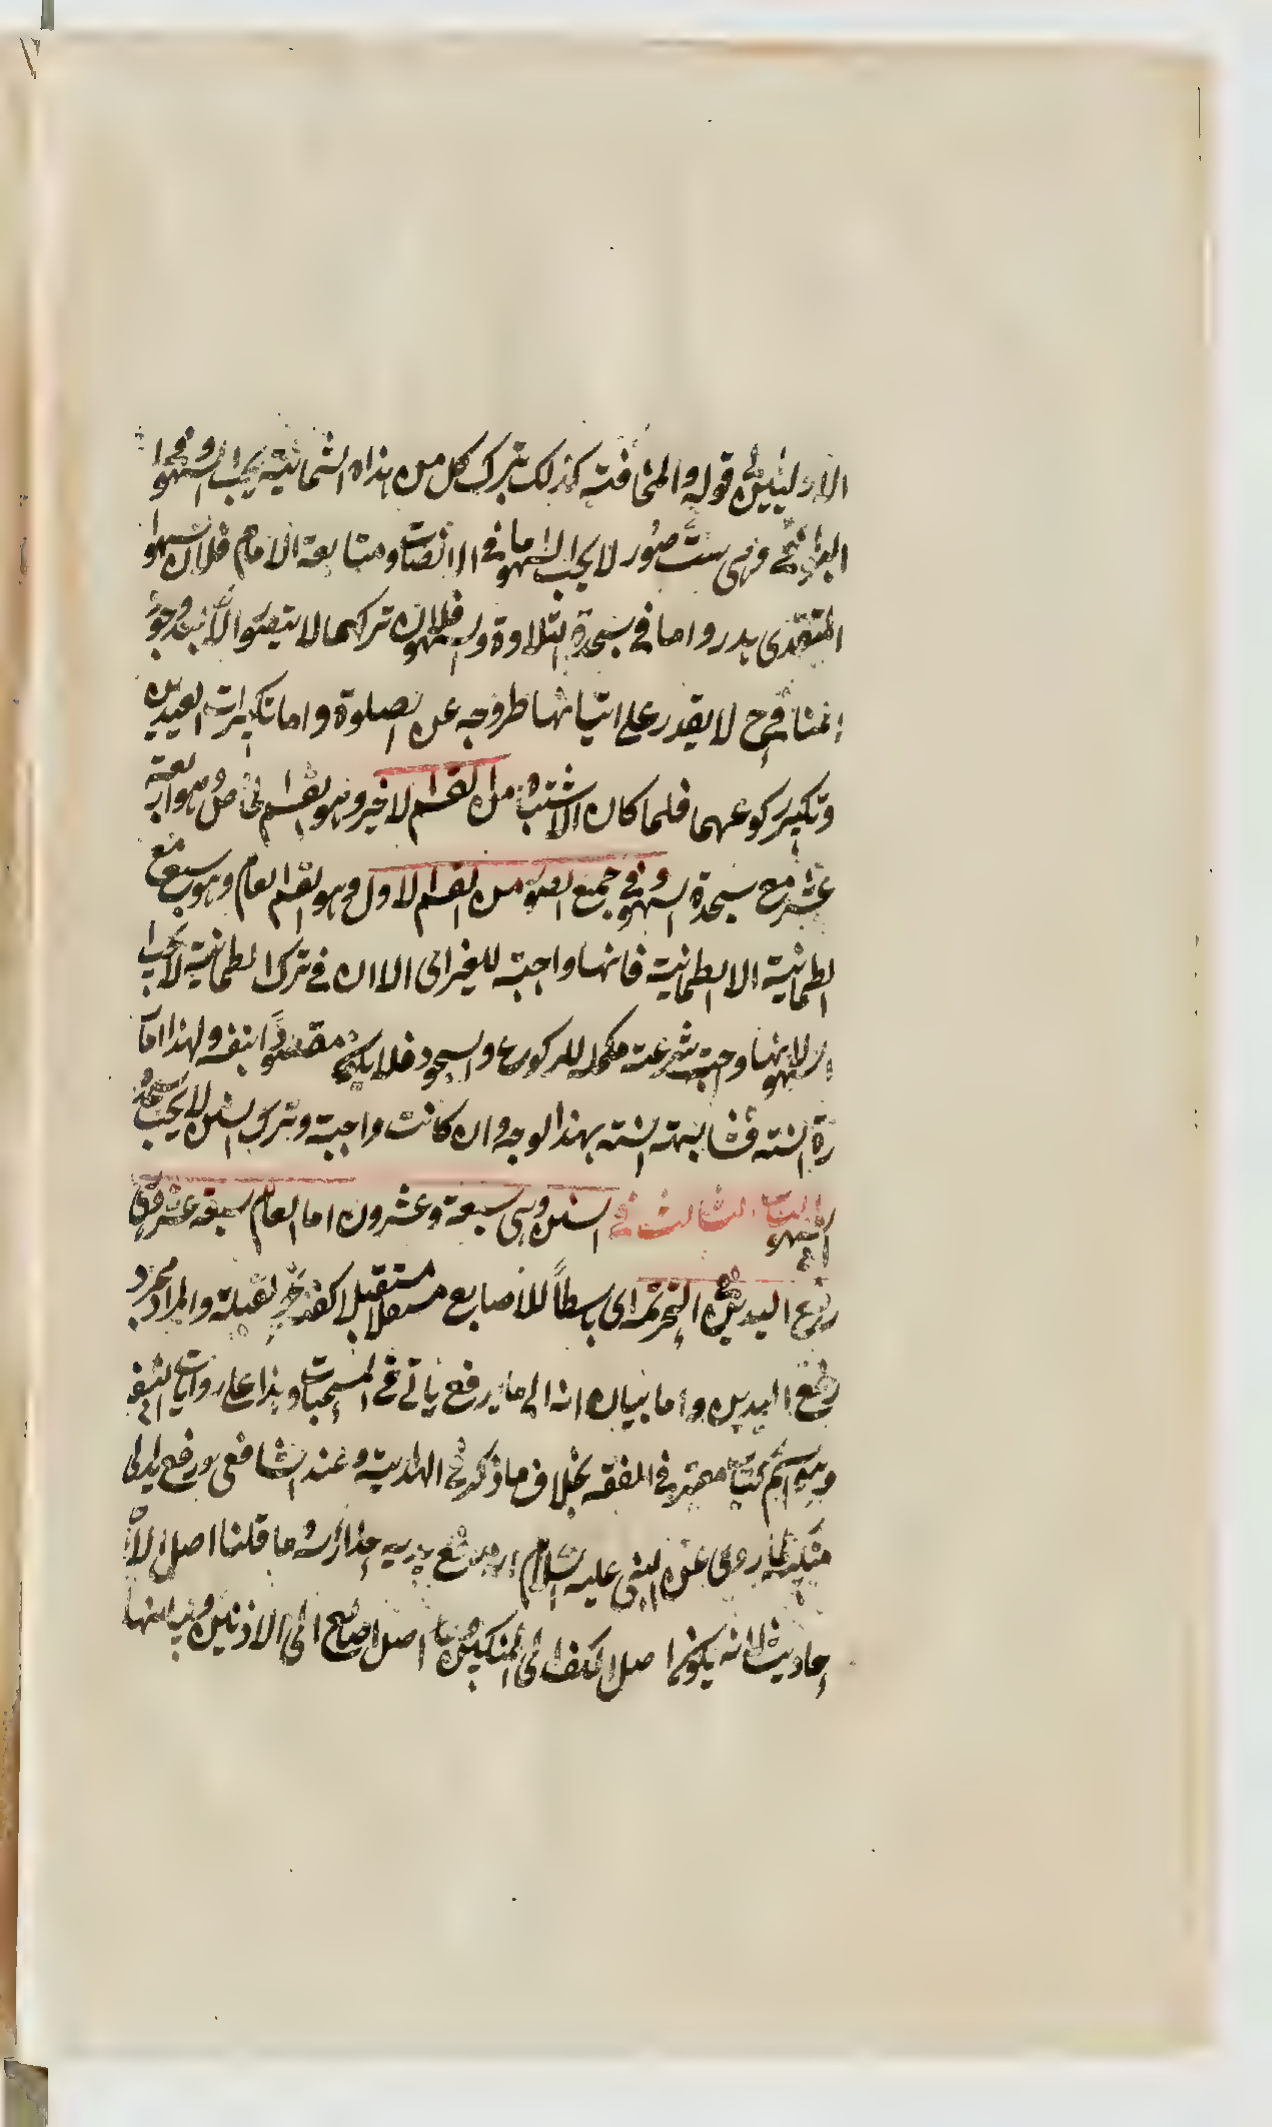 الاوليين قوله والمخافتة كذلك بترك كل من هذاه الثمانية يجب السهو وفى ا
البواقى وهى ست صور لا يجب السهو اما فى الانصات ومتابعة الامام فلان سهوا
المقتدى بدر واما فى سجدة التلاوة والسهو فلان تركهما لا يتصوا الا بعد وجو
المنافى ح لا يقدر على اتيانها طروجه عن الصلوة واما تكبيرات العيدين
وتكبير ركوعهما فلما كان الاشتباه من القسم الاخير وهو القسم الخاص هو اربعة
عشر مع سجدة السهو وفى جميع الصور من القسم الاول وهو القسم العام وهو سبع مع
الطمانية الا الطمانية فانها واجبة للغير اى الا ان فى ترك الطمانية لا يجب ا
لسهو لانها وجبت شرعت مكملة للركوع والسجود فلا يكون مقصودا بنفسه ولهذا اما
رة السنة فشابهته السنة بهذا الوجه وان كانت واجبة وترك السنن لا يجب سجد
السهو الباب الثالث فى السنن وهى سبعة وعشرون اما العام سبعة عشر وهى
رفع اليدين التحريمة اى باسطاً للاصابع مستقبلا كفه نحو القبلة والمراد مجرد
رفع اليدين واما بيان انه الى ما يرفع ياتى فى المستحبات وهذا على روايات
وهو اسم كتاب معتبر فى الفقه بخلاف ما ذكر فى الهداية وعند الشافعى يرفع يد الى
منكبيه لما روى عن النبى عليه السلام رفع يديه حذا راسه ما قلنا اصل الا
احاديث لانه يكون اصل الكف الى المنكبين اصل اصابع الى الاذنين وبينها